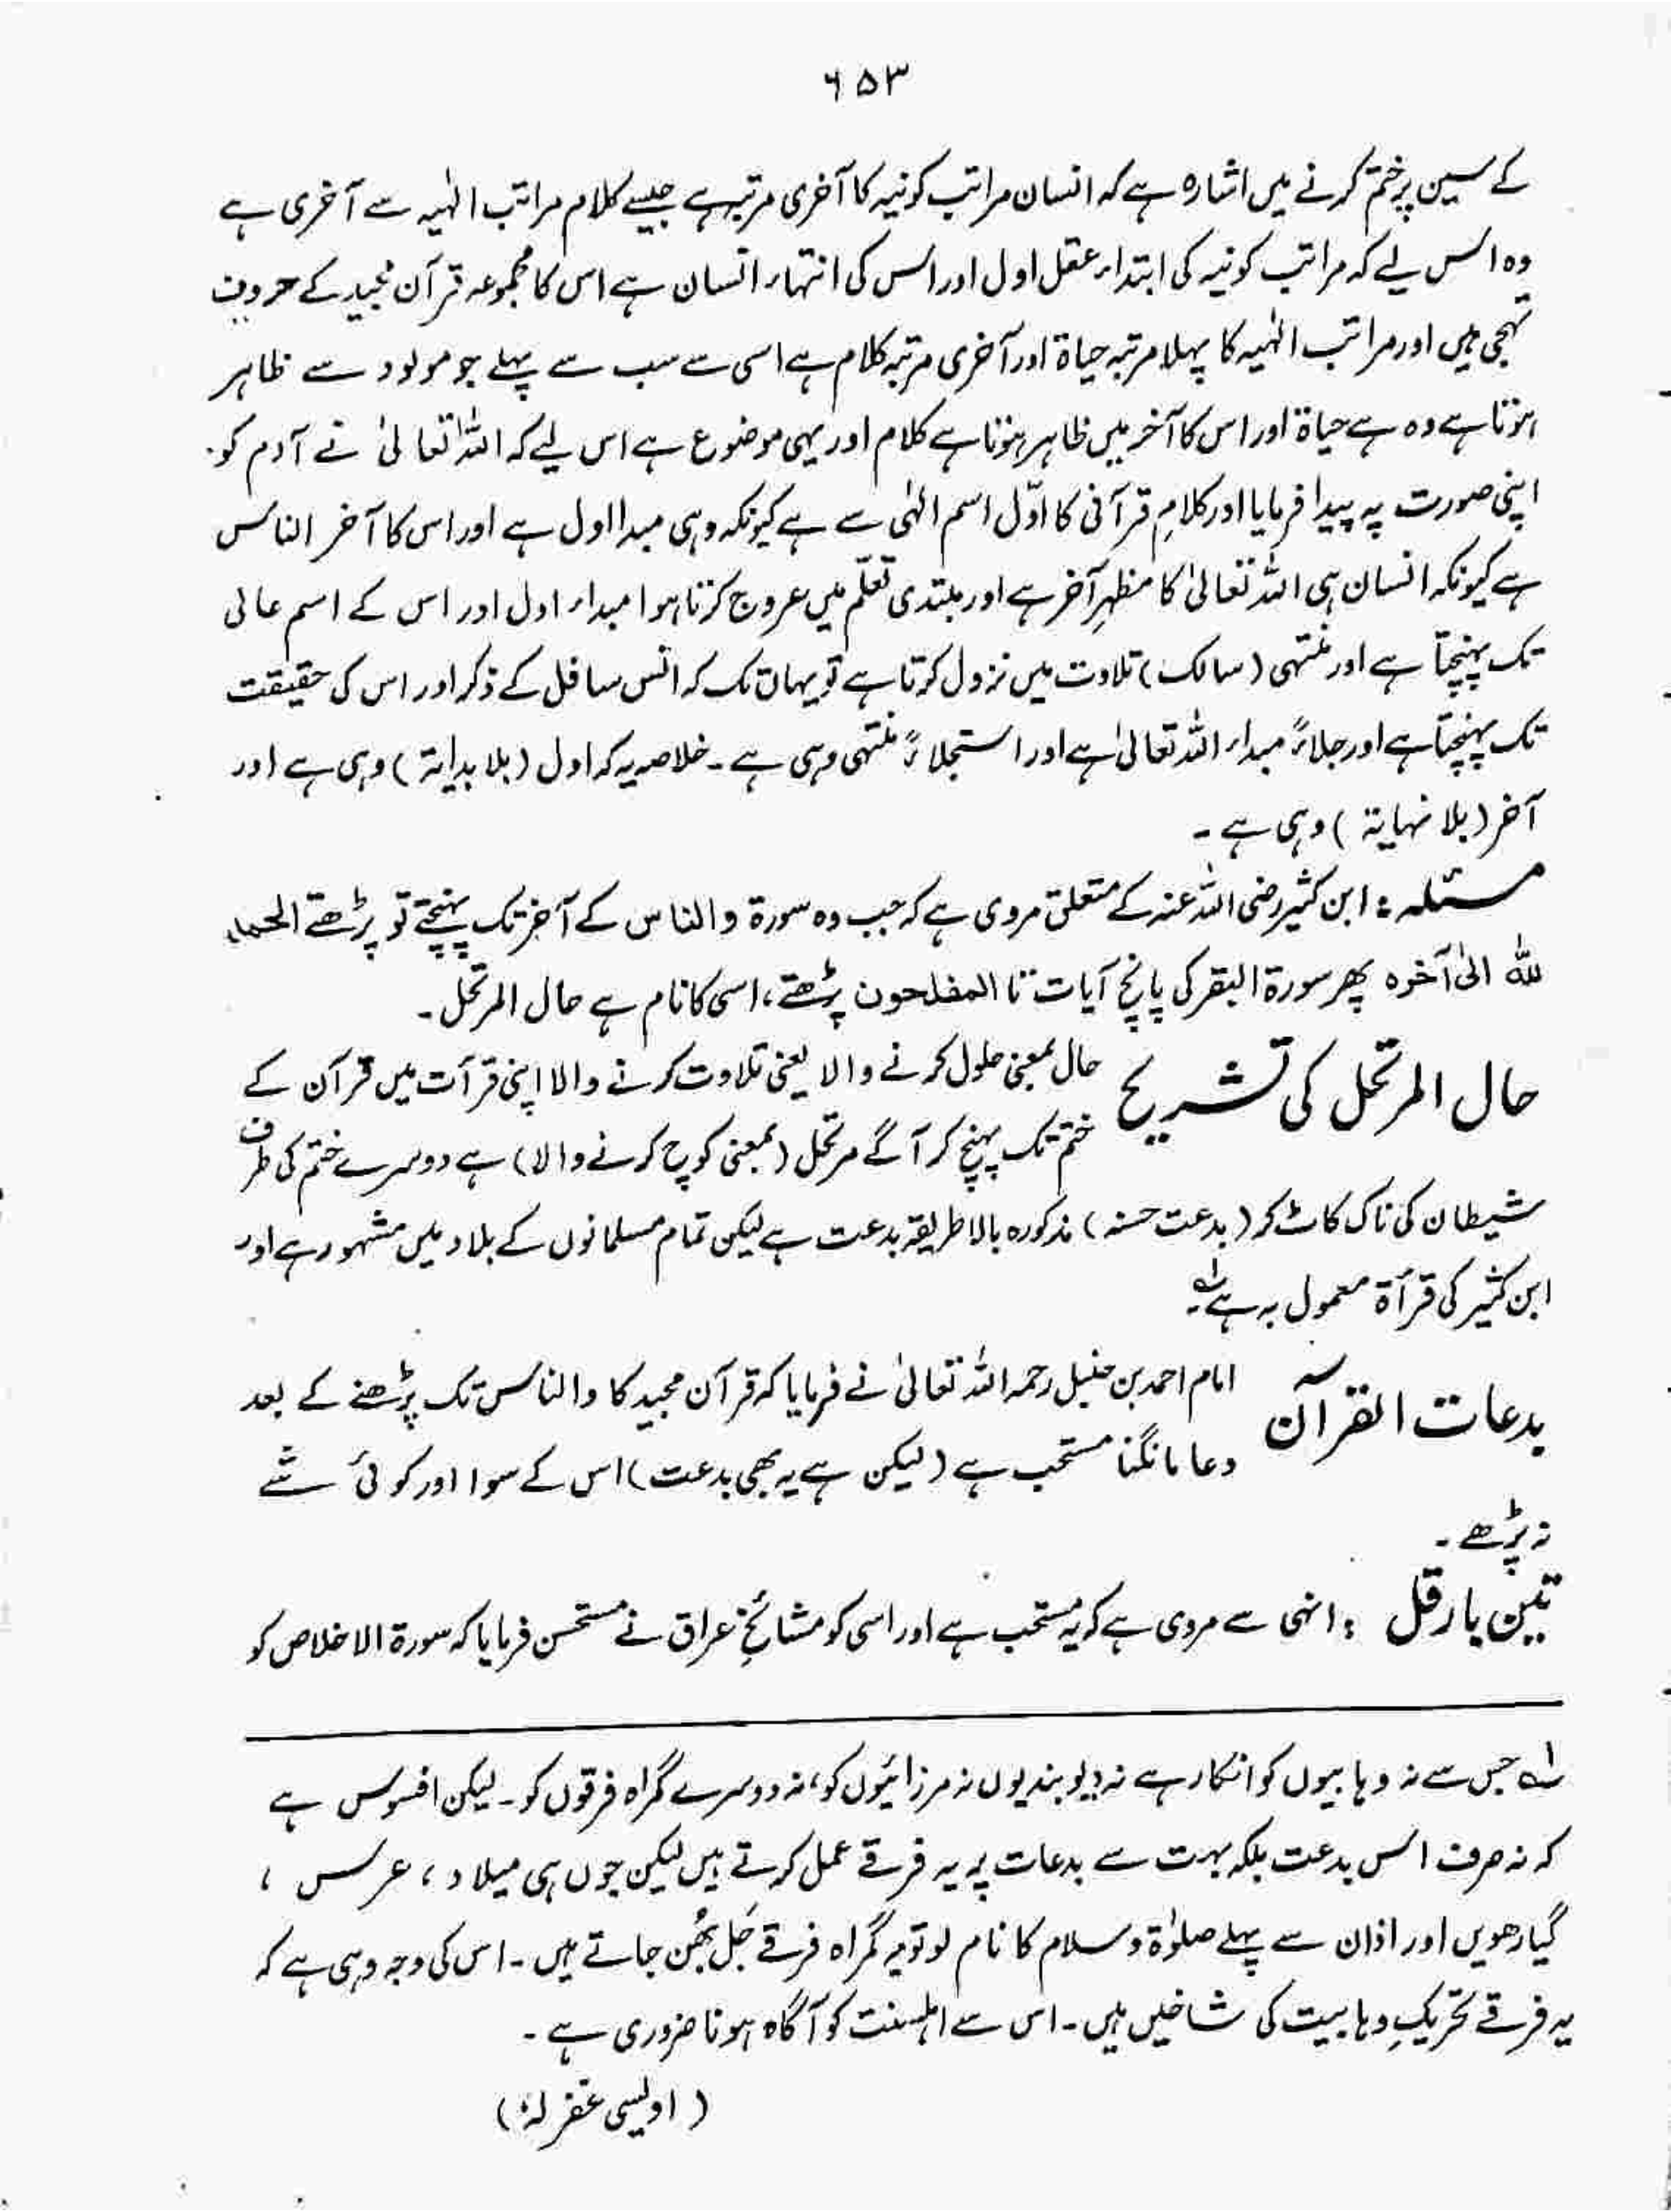 ۶۵۳
کے سین پر ختم کرنے میں اشارہ ہے کہ انسان مراتب کونیہ کا آخری مرتبہ ہے جیسے کلام مراتب الٰہیہ سے آخری ہے
وہ اس لیے کہ مراتب کونیہ کی ابتداء عقل اول اور اس کی انتہاء انسان ہے اس کا مجموعہ قرآن مجید کے حروف
تہجی ہیں اور مراتب الٰہیہ کا پہلا مرتبہ حیاۃ اور آخری مرتبہ کلام ہے اسی سے سب سے پہلے جو مولود سے ظاہر
ہوتا ہے وہ ہے حیاۃ اور اس کا آخر میں ظاہر ہوتا ہے کلام اور یہی موضوع ہے اس لیے کہ اللہ تعالیٰ نے آدم کو
اپنی صورت پہ پیدا فرمایا اور کلامِ قرآنی کا اوّل اسم الٰہی سے ہے کیونکہ وہی مبدا اول ہے اور اس کا آخر الناس
ہے کیونکہ انسان ہی اللہ تعالیٰ کا مظہرِ آخر ہے اور مبتدی تعلّم میں عروج کرتا ہوا مبداء اول اور اس کے اسم عالی
تک پہنچتا ہے اور منتہی (سالک) تلاوت میں نزول کرتا ہے تو یہاں تک کہ انس سافل کے ذکر اور اس کی حقیقت
تک پہنچتا ہے اور جلاءً مبداء اللہ تعالیٰ ہے اور استجلاءً منتہی وہی ہے ۔ خلاصہ یہ کہ اول (بلا بدایۃ) وہی ہے اور
آخر (بلا نہایۃ) وہی ہے ۔
مسئلہ : ابن کثیر رضی اللہ عنہ کے متعلق مروی ہے کہ جب وہ سورۃ والناس کے آخر تک پہنچتے تو پڑھتے الحمد
للہ الیٰ آخرہ پھر سورۃ البقر کی پانچ آیات تا المفلحون پڑھتے، اسی کا نام ہے حال المرتحل ۔
حال المرتحل کی تشریح حال بمعنی حلول کرنے والا یعنی تلاوت کرنے والا اپنی قرآت میں قرآن کے
ختم تک پہنچ کر آگے مرتحل (بمعنی کوچ کرنے والا) ہے دوسرے ختم کی طرف
شیطان کی ناک کاٹ کر (بدعت حسنہ) مذکورہ بالا طریقہ بدعت ہے لیکن تمام مسلمانوں کے بلاد میں مشہور ہے اور
ابن کثیر کی قرآۃ معمول بہ ہے ؂۱۔
بدعات القرآن امام احمد بن حنبل رحمہ اللہ تعالیٰ نے فرمایا کہ قرآن مجید کا والناس تک پڑھنے کے بعد
دعا مانگنا مستحب ہے (لیکن ہے یہ بھی بدعت) اس کے سوا اور کوئی شے
نہ پڑھے ۔
تین بار قل : انہی سے مروی ہے کہ یہ مستحب ہے اور اسی کو مشائخ عراق نے مستحسن فرمایا کہ سورۃ الاخلاص کو
؂۱ جس سے نہ وہابیوں کو انکار ہے نہ دیوبندیوں نہ مرزائیوں کو، نہ دوسرے گمراہ فرقوں کو ۔ لیکن افسوس ہے
کہ نہ صرف اس بدعت بلکہ بہت سے بدعات پہ یہ فرقے عمل کرتے ہیں لیکن جوں ہی میلاد ، عرس ،
گیارھویں اور اذان سے پہلے صلوٰۃ و سلام کا نام لو تو یہ گمراہ فرقے جَل بھُن جاتے ہیں ۔ اس کی وجہ وہی ہے کہ
یہ فرقے تحریکِ وہابیت کی شاخیں ہیں ۔ اس سے اہلسنت کو آگاہ ہونا ضروری ہے ۔
(اویسی غفرلہٗ)